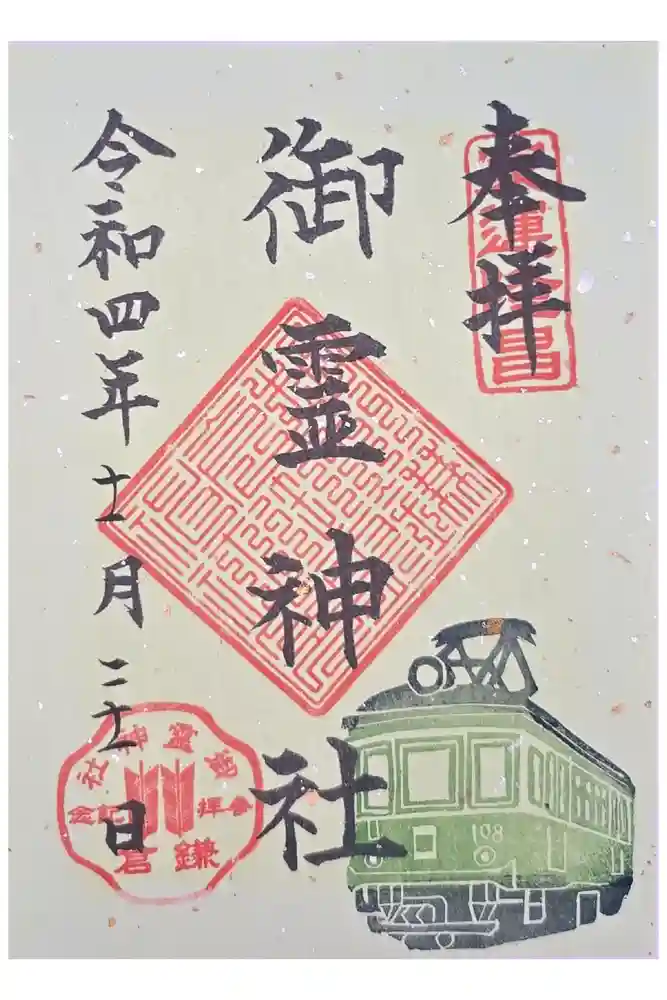 奉拝
運
昌
御霊神社
令和四年十一月二十一日
御霊神社
参拝記念
鎌倉
108